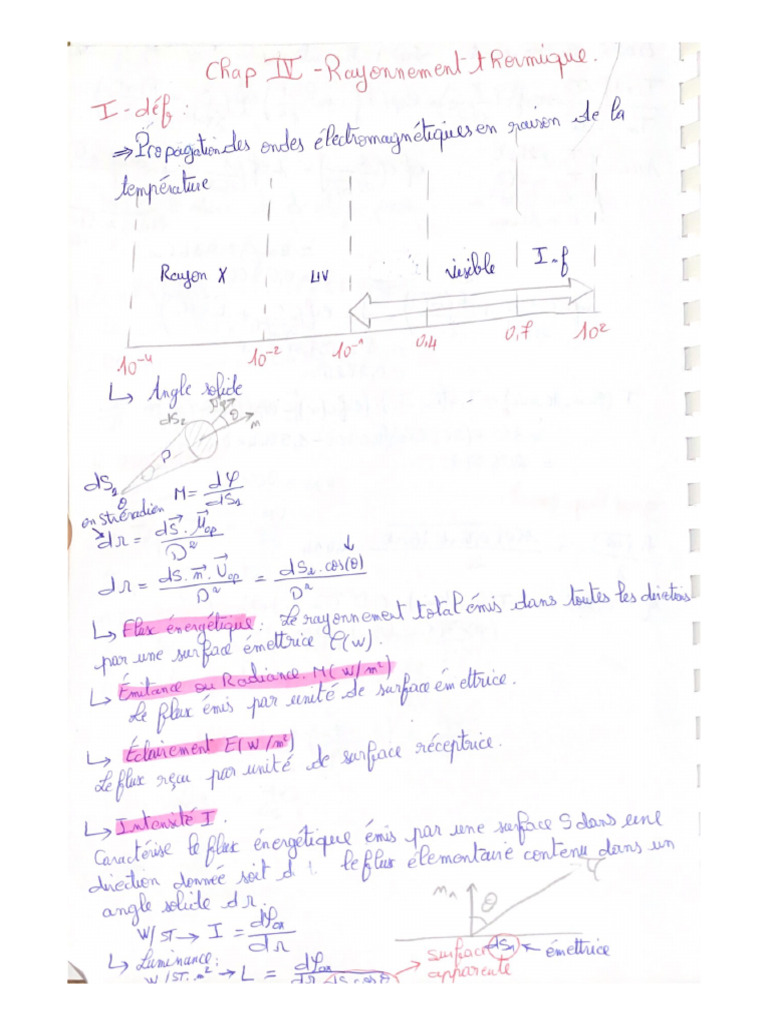 Chap IV - Rayonnement thermique.
I - déf :
⇒ Propagation des ondes électromagnétiques en raison de la
température
Rayon X UV visible I-f
10⁻⁴ 10⁻² 10⁻¹ 0,4 0,7 10²
↳ Angle solide
dS₂ θ n
P
dS₁ θ
M = dφ/dS₁
en stéradian
dΩ = dS⃗ · U⃗op / D²
dΩ = dS · n⃗ · U⃗op / D² = dS₂ · cos(θ) / D²
↳ Flux énergétique : Le rayonnement total émis dans toutes les directions
par une surface émettrice φ(w).
↳ Émitance ou Radiance M(W/m²)
Le flux émis par unité de surface émettrice.
↳ Éclairement E(W/m²)
Le flux reçu par unité de surface réceptrice.
↳ Intensité I.
Caractérise le flux énergétique émis par une surface S dans une
direction donnée soit d : le flux élementaire contenu dans un
angle solide dΩ.
θ
W/ST → I = dφox/dΩ
surface dS₁ ← émettrice
apparente
↳ Luminance :
W/ST.m² → L = dφox / dΩ dS cosθ